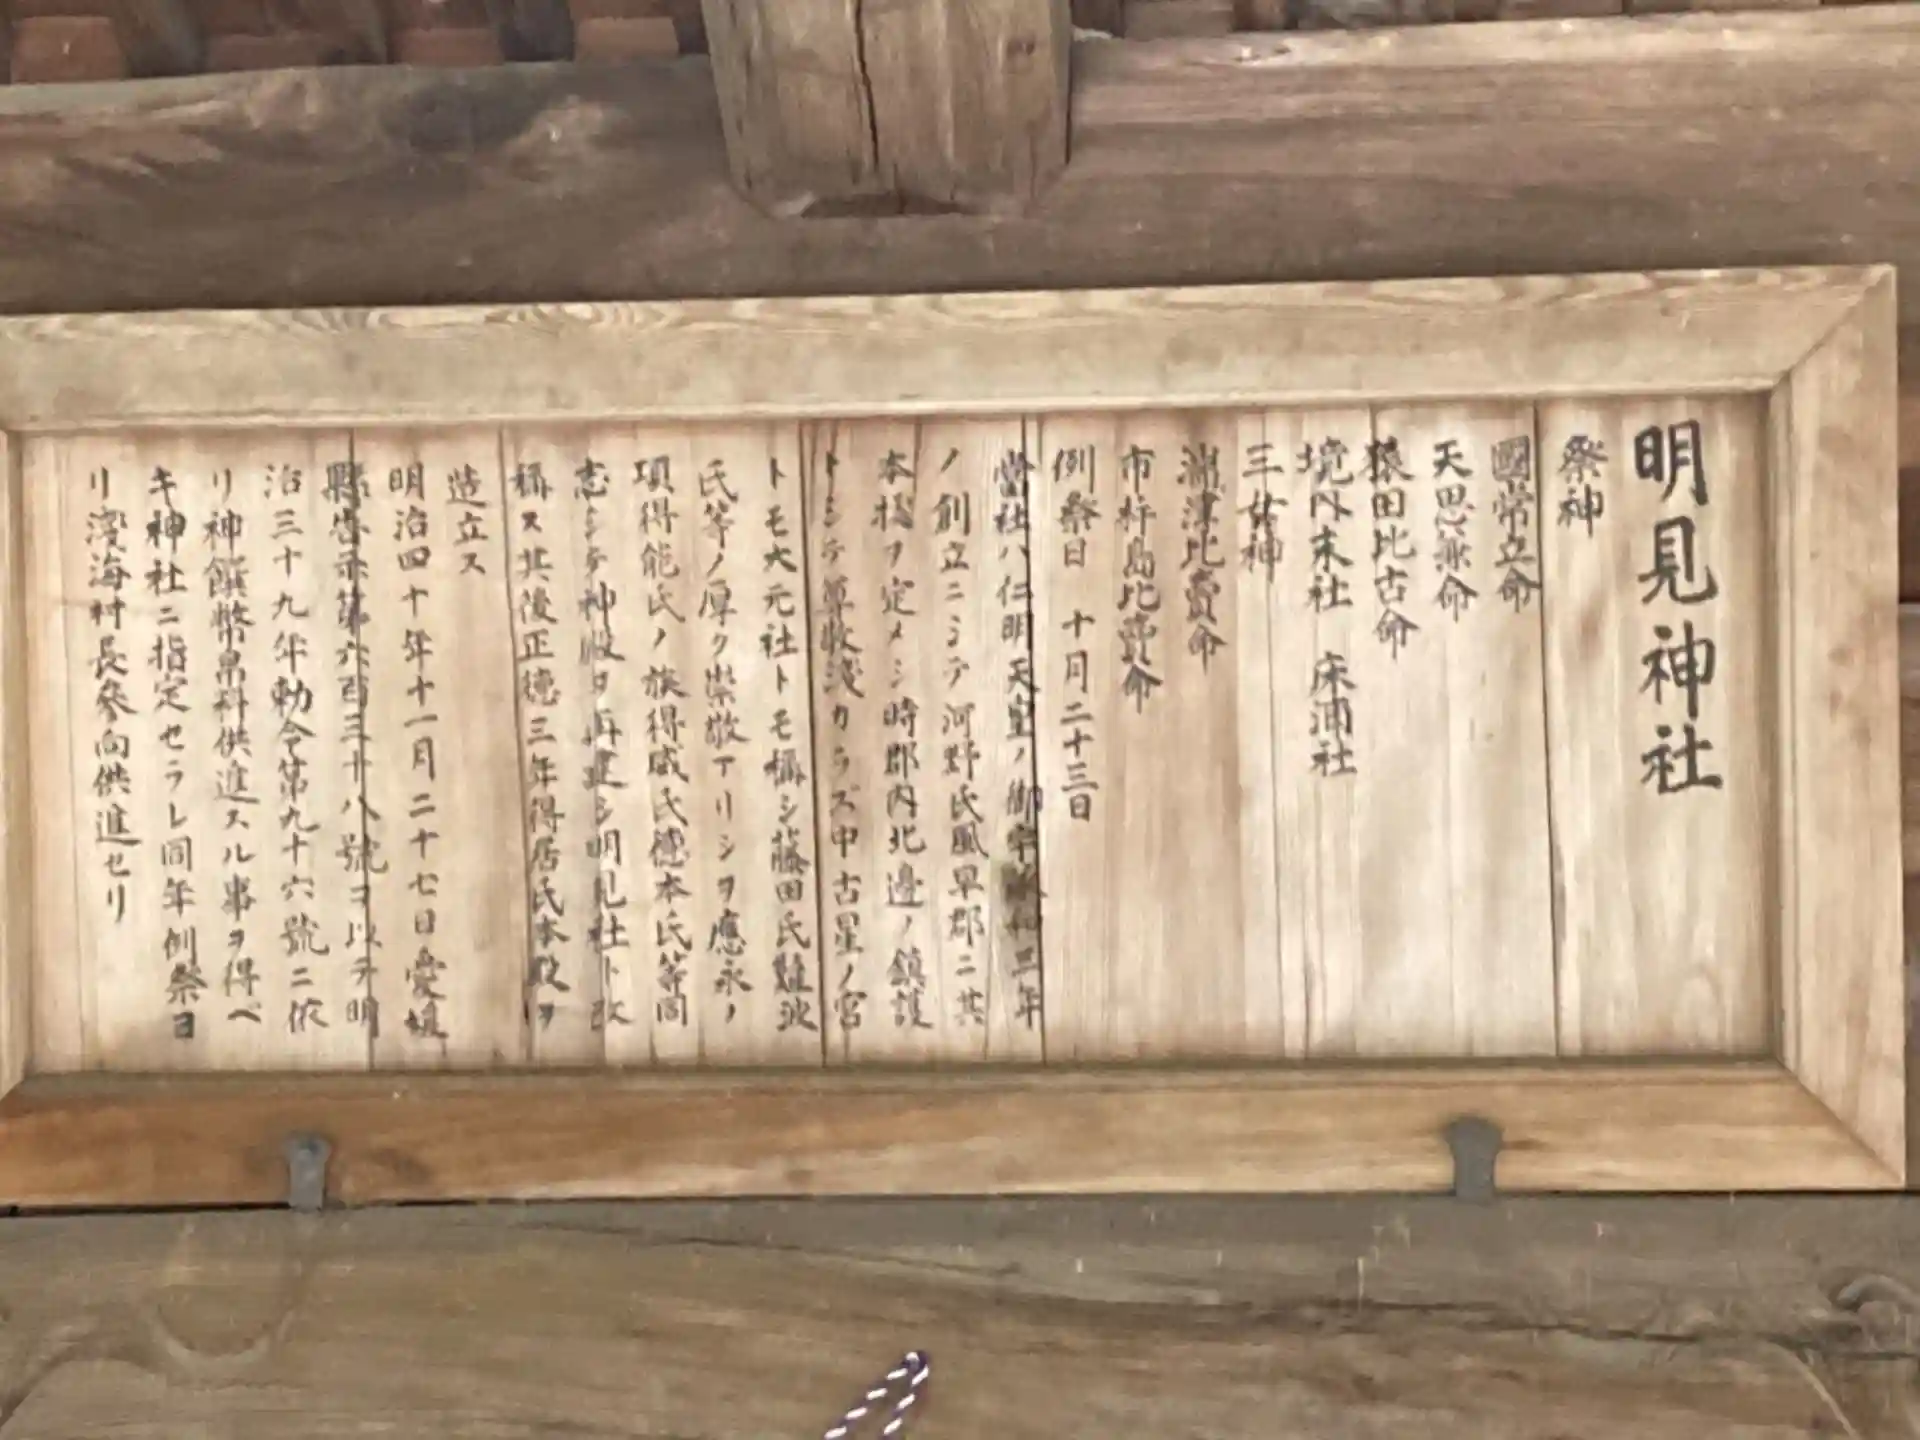 明見神社
祭神
國常立命
天思兼命
猿田比古命
境内末社 床浦社
三女神
湍津比賣命
市杵島比賣命
例祭日 十月二十三日
當社ハ仁明天皇ノ御宇承和三年
ノ創立ニシテ河野氏風早郡ニ其
本拠ヲ定メシ時郡内北邊ノ鎮護
トシテ尊敬淺カラズ中古星ノ宮
トモ大元社トモ稱シ藤田氏難波
氏等ノ厚ク崇敬アリシヲ應永ノ
項得能氏ノ族得威氏德本氏等同
志シテ神殿ヲ再建シ明見社ト改
稱ス其後正德三年得居氏本殿ヲ
造立ス
明治四十年十一月二十七日愛媛
縣告示第六百三十八號ヲ以テ明
治三十九年勅令第九十六號ニ依
リ神饌幣帛料供進スル事ヲ得ベ
キ神社ニ指定セラレ同年例祭ヨ
リ淺海村長參向供進セリ